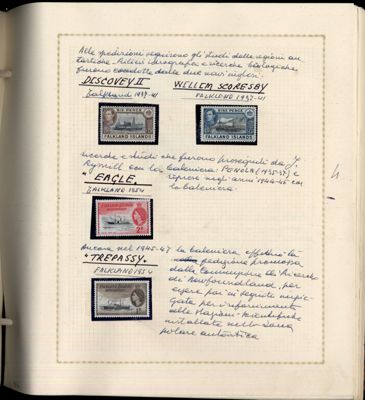 Alle spedizioni seguirono gli studi delle regioni an
tartiche. Rilievi idrografici e ricerche biologiche
furono condotte dalle due navi inglesi.
DISCOVEY II WELLEM SCORESBY
Falkland 1937-41 FALKLAND 1937-41
FALKLAND ISLANDS FALKLAND ISLANDS
ricerche e studi che furono proseguiti da J.
Rymill con la baleniera: PENOLA (1935-37) e
riprese negli anni 1944-45 con
"EAGLE. la baleniera
FALKLAND 1954
Ancora nel 1945-47 la baleniera effettuò la
"TREPASSY. spedizione promossa
FALKLAND 1954 dalla Commissione di Ricerche
di Newfoundland, per
essere poi in seguito impie-
gata per i rifornimenti
alle Stazioni Scientifiche
installate nella zona
polare antartica